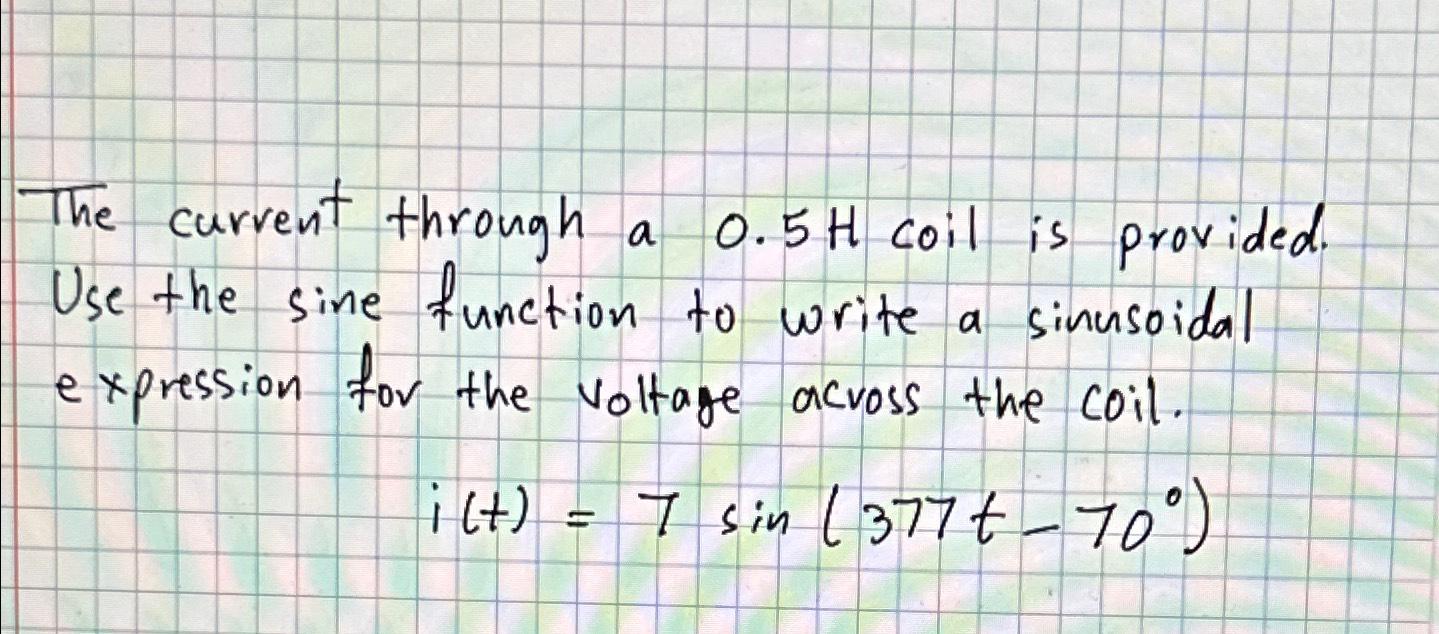 The current through a 0.5H coil is provided.
Use the sine function to write a sinusoidal
expression for the voltage across the coil.
i(t) = 7 sin (377t - 70°)